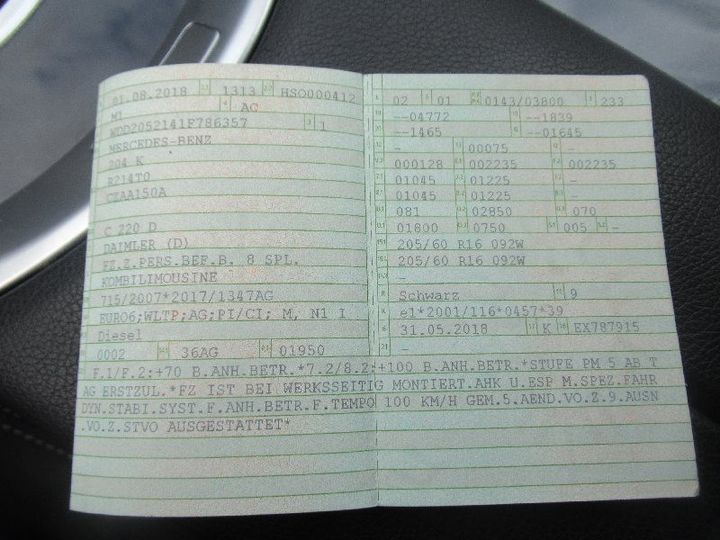 01.08.2018 1313 HSO000412
M1 AC
WDD2052141F786357 1
MERCEDES-BENZ
204 K
R214T0
CZAA150A
C 220 D
DAIMLER (D)
FZ.Z.PERS.BEF.B. 8 SPL.
KOMBILIMOUSINE
715/2007*2017/1347AG
EURO6;WLTP;AG;PI/CI; M, N1 I
Diesel
0002 36AG 01950
02 01 0143/03800 233
--04772 --1839
--1465 --01645
- 00075
000128 002235 002235
01045 01225 -
01045 01225 -
081 02850 070
01800 0750 005 -
205/60 R16 092W
205/60 R16 092W
-
Schwarz 9
e1*2001/116*0457*39
31.05.2018 K EX787915
-
F.1/F.2:+70 B.ANH.BETR.*7.2/8.2:+100 B.ANH.BETR.*STUFE PM 5 AB T
AG ERSTZUL.*FZ IST BEI WERKSSEITIG MONTIERT.AHK U.ESP M.SPEZ.FAHR
DYN.STABI.SYST.F.ANH.BETR.F.TEMPO 100 KM/H GEM.5.AEND.VO.Z.9.AUSN
.VO.Z.STVO AUSGESTATTET*